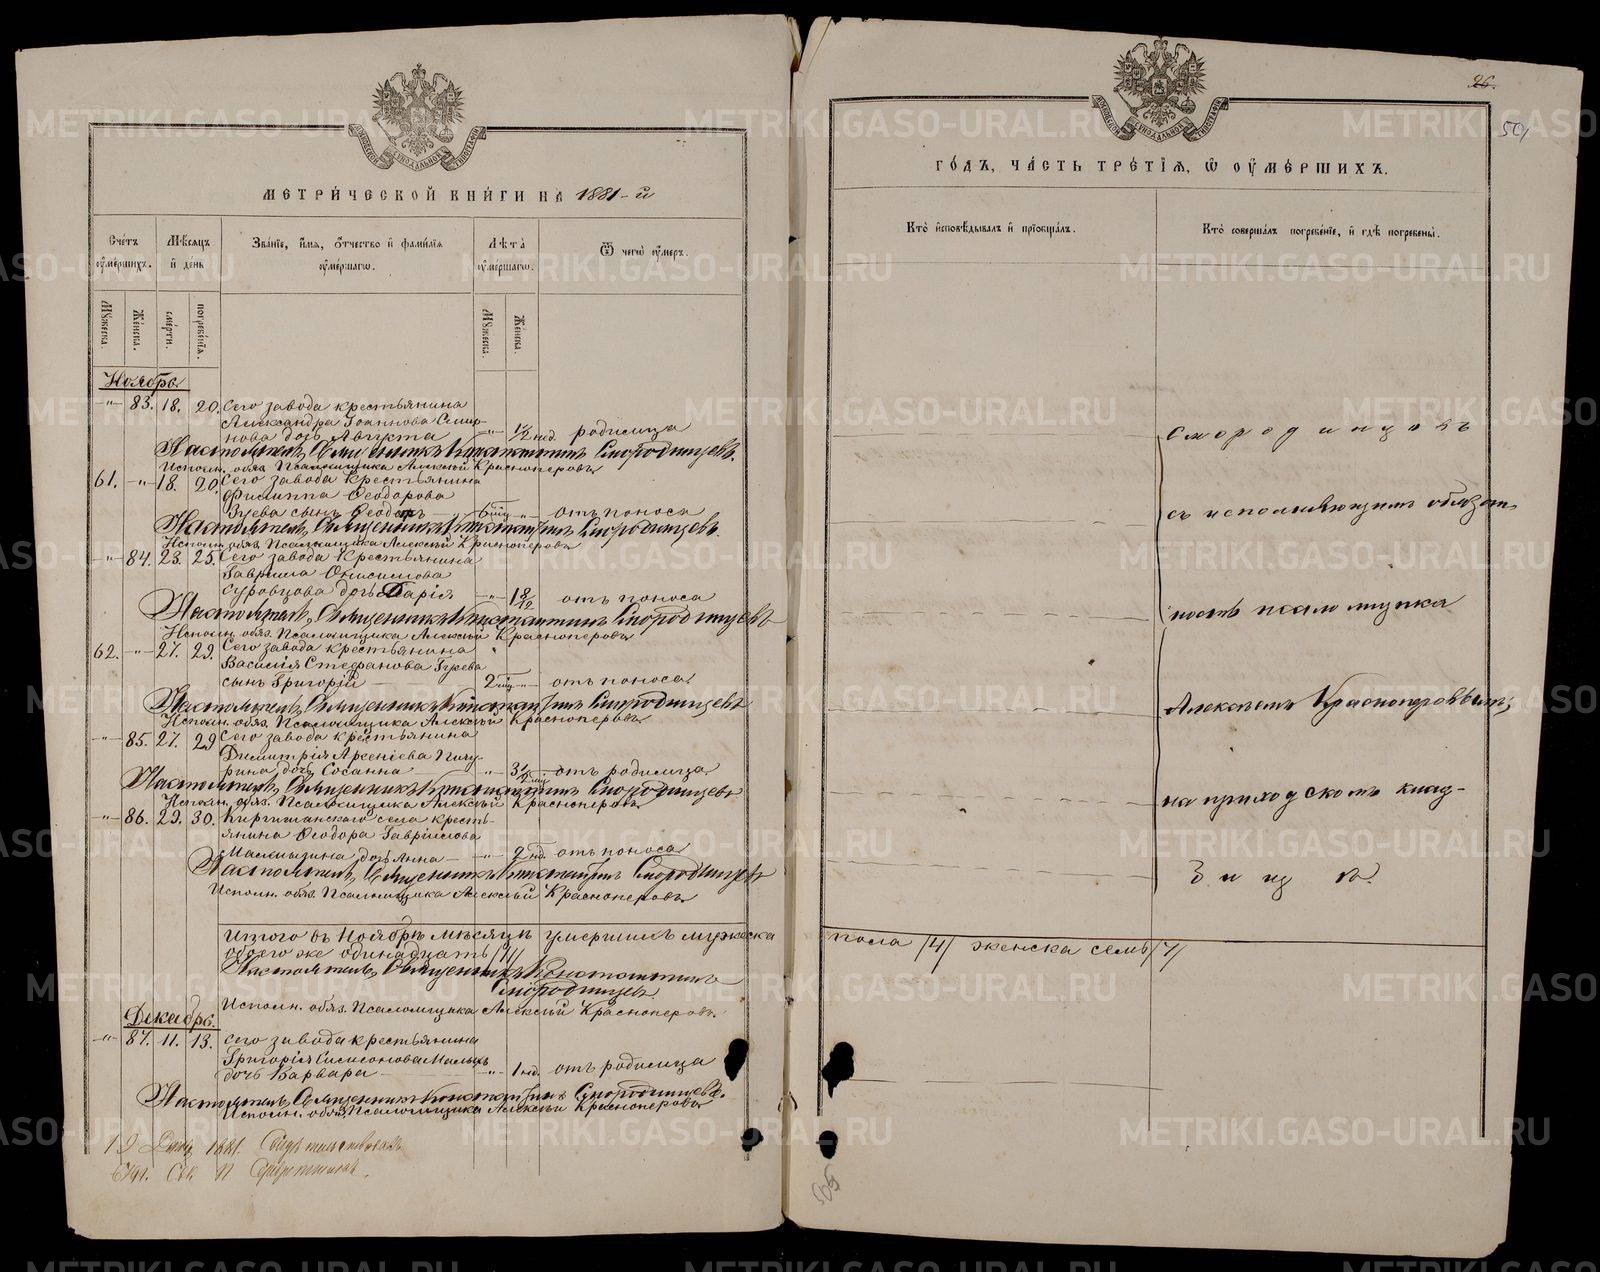 МЕТРИЧЕСКОЙ КНИГИ НА 1881-й
Счетъ умершихъ.
Мѣсяцъ и день
Званіе, имя, отчество и фамилія умершаго.
Лѣта умершаго.
Ѿ чегѡ умеръ.
Мужеска.
Женска.
смерти.
погребенія.
Мужеска.
Женска.
Ноябрь
-"- 83. 18. 20. Сего завода крестьянина
Александра Іоаннова Смир-
нова дочь Августа -"- 1½ нед. родимца
Настоятель, Священникъ Константинъ Смородинцевъ.
Исполн. обяз. Псаломщика Алексѣй Красноперовъ
61. -"- 18. 20. Сего завода крестьянина
Филиппа Ѳеодорова
Зуева сынъ Ѳеодоръ 6 мѣц -"- отъ поноса
Настоятель, Священникъ Константинъ Смородинцевъ.
Исполн. обяз. Псаломщика Алексѣй Красноперовъ
-"- 84. 23. 25. Сего завода крестьянина
Гавриила Онисимова
Суровцова дочь Дарія -"- 1 8/12 отъ поноса
Настоятель, Священникъ Константинъ Смородинцевъ
Исполн. обяз. Псаломщика Алексѣй Красноперовъ
62. -"- 27. 29. Сего завода крестьянина
Василія Стефанова Зуева
сынъ Григорій 2 мѣц -"- отъ поноса
Настоятель, Священникъ Константинъ Смородинцевъ
Исполн. обяз. Псаломщика Алексѣй Красноперовъ
-"- 85. 27. 29 Сего завода крестьянина
Димитрія Арсеніева
дочь Сосанна -"- 3½ мѣц отъ родимца
Настоятель, Священникъ Константинъ Смородинцевъ
Исполн. обяз. Псаломщика Алексѣй Красноперовъ
-"- 86. 29. 30. Киргишанскаго села кресть-
янина Ѳеодора Гавріилова
дочь Анна -"- 9 нд. отъ поноса
Настоятель, Священникъ Константинъ Смородинцевъ
Исполн. обяз. Псаломщика Алексѣй Красноперовъ
Итого въ Ноябрѣ мѣсяцѣ умершихъ мужеска
обоего же одинадцать /11/
Настоятель, Священникъ Константинъ
Смородинцевъ.
Исполн. обяз. Псаломщика Алексѣй Красноперовъ.
Декабрь.
-"- 87. 11. 13. Сего завода крестьянина
Григорія Малыхъ
дочь Варвара -"- 1 нд. отъ родимца
Настоятель, Священникъ Константинъ Смородинцевъ.
Исполн. обяз. Псаломщика Алексѣй Красноперовъ
19 1881. Свидѣтельствовалъ
26.
501
ГОДЪ, ЧАСТЬ ТРЕТІЯ, Ѡ УМЕРШИХЪ.
Кто исповѣдывалъ и пріобщалъ.
Кто совершалъ погребеніе, и гдѣ погребены.
Смородинцовъ
съ исполняющимъ обязан
ность псаломщика
Алексѣемъ Красноперовымъ,
на приходскомъ клад-
бищѣ.
пола /4/ женска семь /7/
505
METRIKI.GASO-URAL.RU